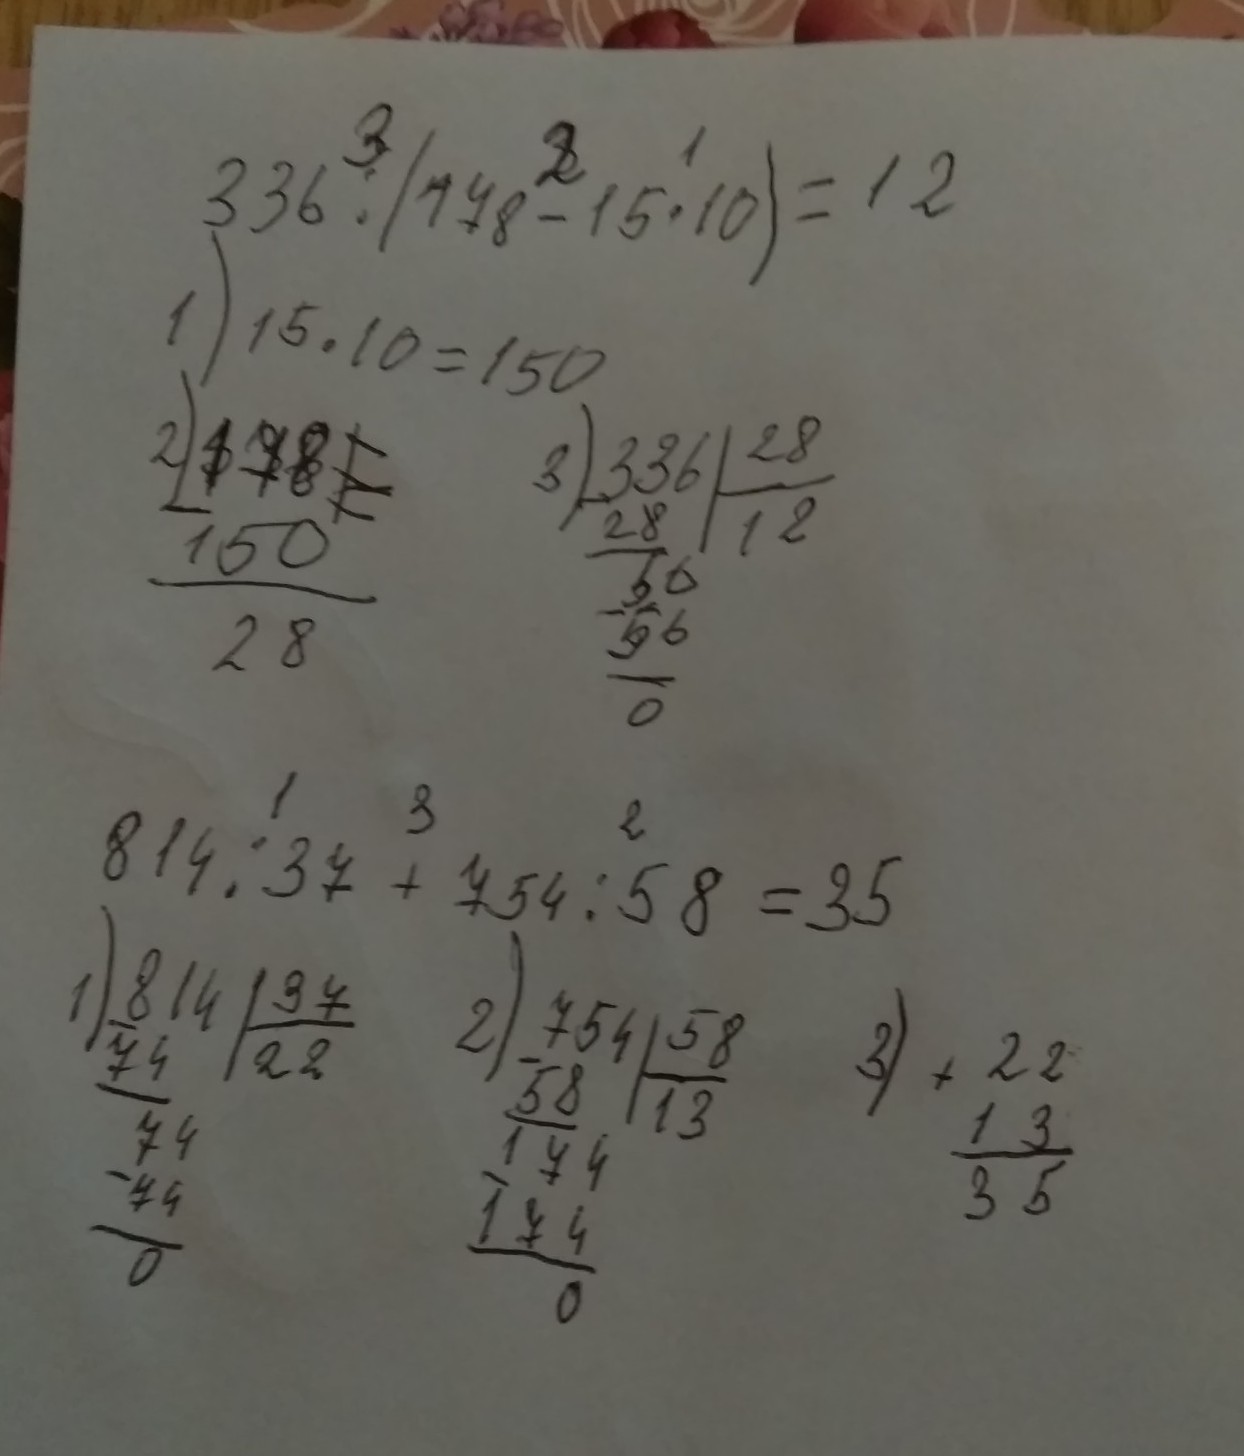 3 2 1
336:(178-15·10)=12
1) 15·10=150
2) 178 3) 336 28
- 150 - 28 12
28 56
- 56
0
1 3 2
814:37+754:58=35
1) 814 37 2) 754 58 3) + 22
- 74 22 - 58 13 13
74 174 35
- 74 - 174
0 0